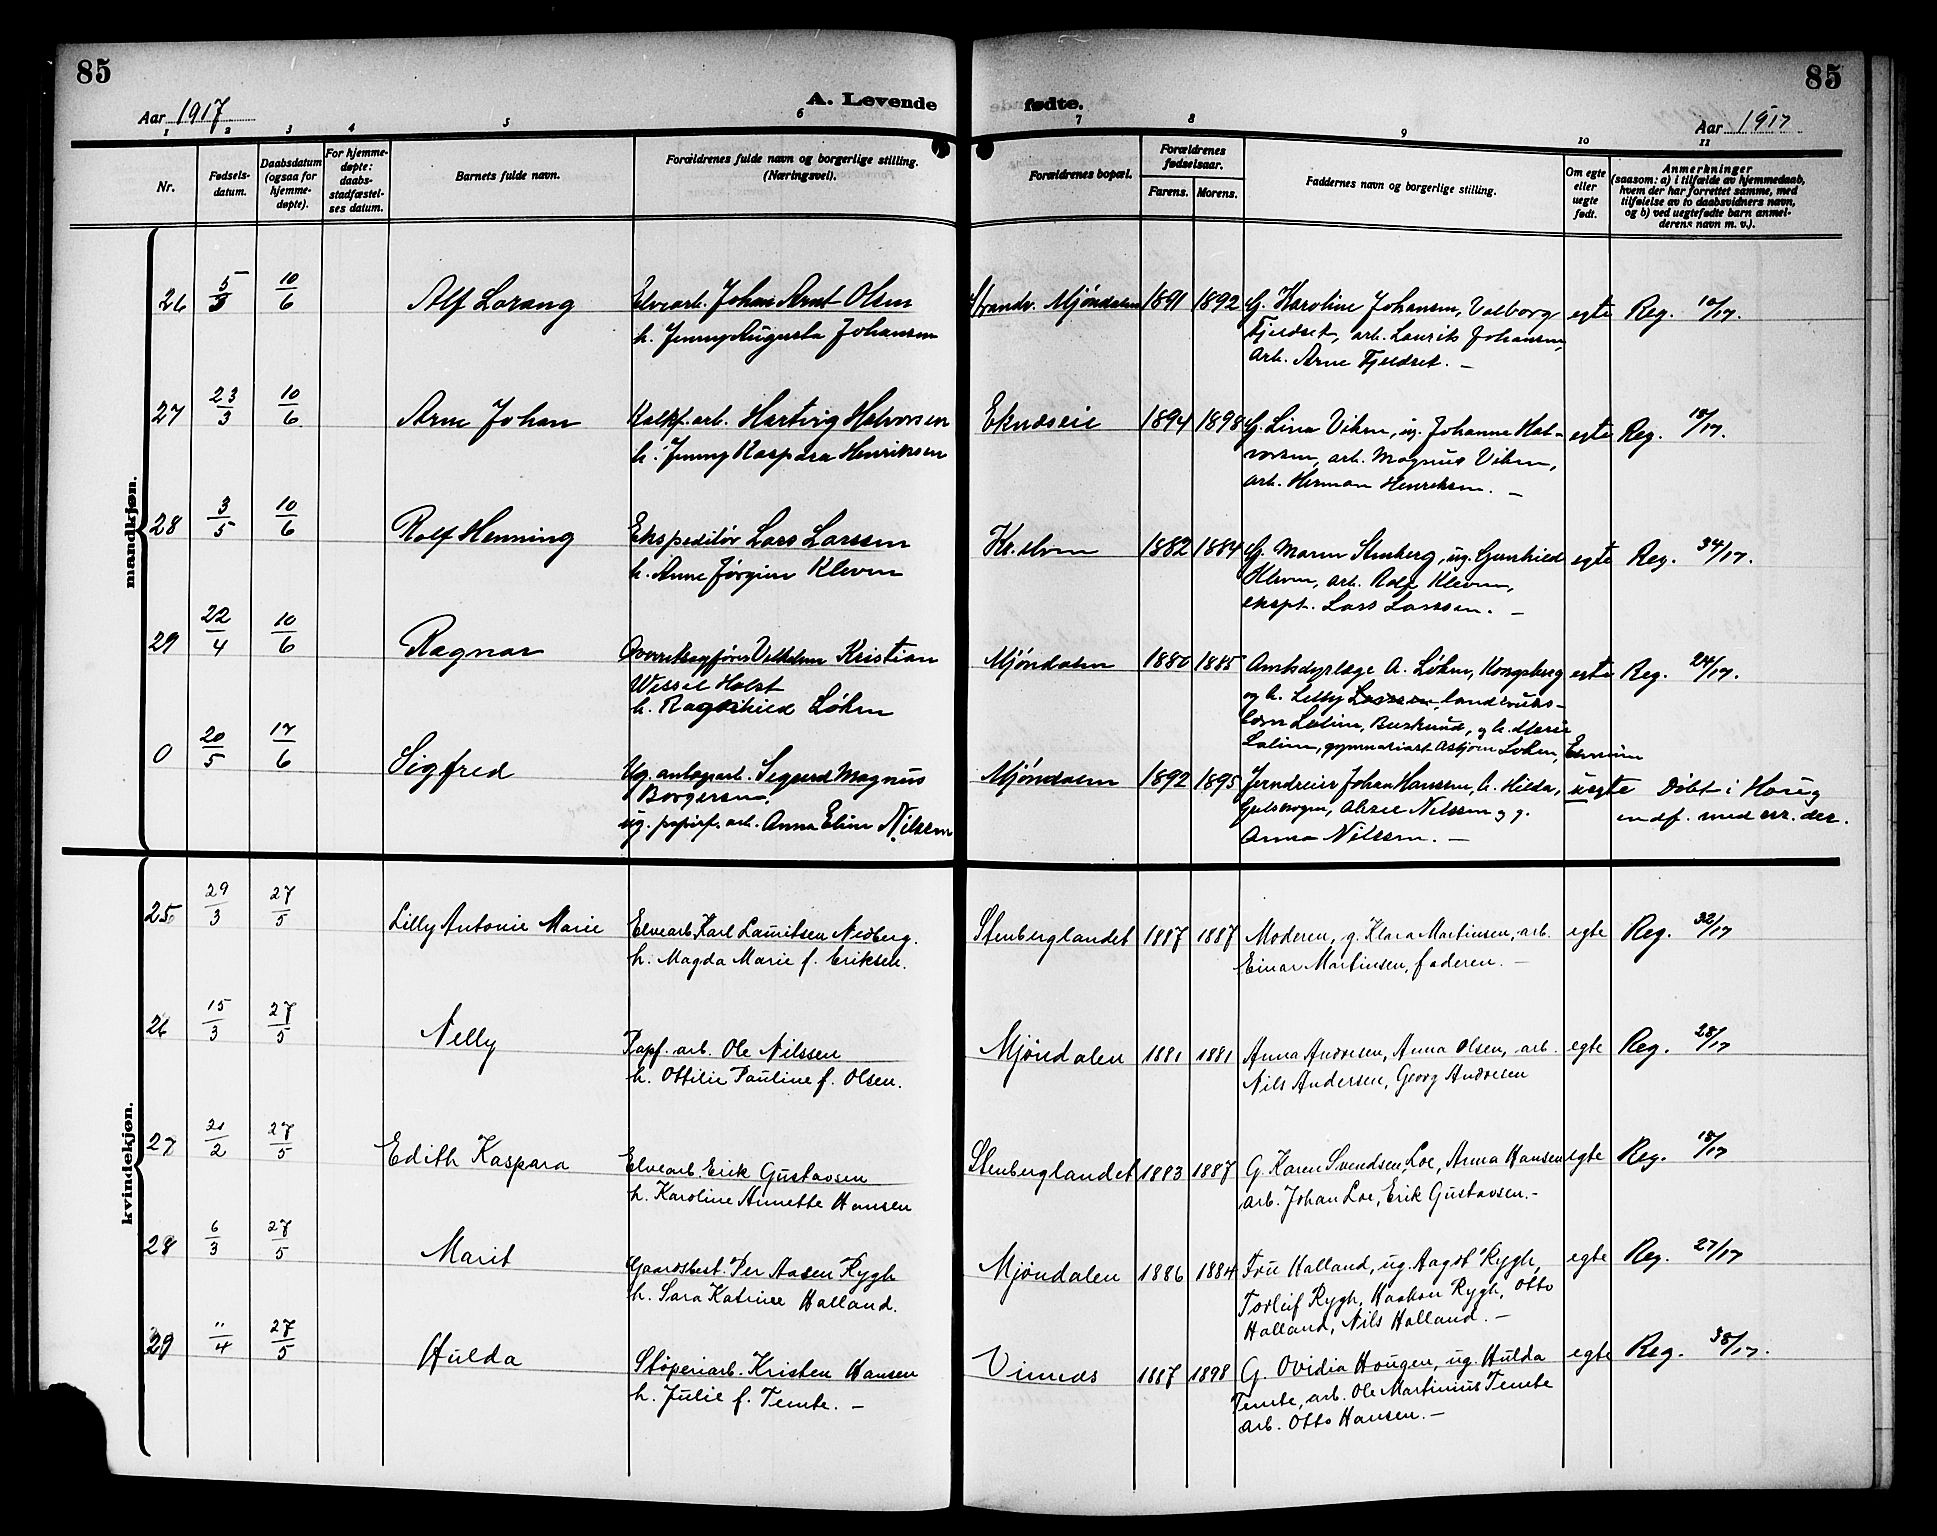 85
85
Aar 1917
A. Levende fødte.
Aar 1917
1 2 3 4 5 6 7 8 9 10 11
Nr.
Fødsels-
datum.
Daabsdatum
(ogsaa for
hjemme-
døpte).
For hjemme-
døpte:
daabs-
stadfæstel-
ses datum.
Barnets fulde navn.
Forældrenes fulde navn og borgerlige stilling.
(Næringsvei).
Forældrenes bopæl.
Forældrenes
fødselsaar.
Farens. Morens.
Faddernes navn og borgerlige stilling.
Om egte
eller
uegte
født.
Anmerkninger
(saasom: a) i tilfælde av hjemmedaab,
hvem der har forrettet samme, med
tilføielse av to daabsvidners navn,
og b) ved uegtefødte barn anmel-
derens navn m. v.).
mandkjøn.
26 5/3 10/6 Alf Lorang
Elvearb. Johan Arnt Olsen
h. Jenny Augusta Johansen
Strandv. Mjöndalen 1891 1892
G. Karoline Johansen, Valborg
Fjeldset, arb. Laurits Johansen,
arb. Arne Fjeldset. –
egte Reg. 10/17.
27 23/3 10/6 Arne Johan
Kalkf. arb. Hartvig Halvorsen
h. Jenny Kaspara Henriksen
Eknæseie 1894 1898
G. Lina Viken, ug. Johanne Hal-
vorsen, arb. Magnus Viken,
arb. Herman Henriksen. –
egte Reg. 18/17.
28 3/5 10/6 Rolf Henning
Ekspeditör Lars Larssen
h. Anne Jörgine Kleven
1882 1884
G. Maren Stenberg, ug. Gunhild
Kleven, arb. Rolf Kleven,
ekspt. Lars Larssen. –
egte Reg. 34/17.
29 22/4 10/6 Ragnar
Overretssagfører Vilhelm Kristian
Wessel Holst
h. Ragnhild Løken
Mjöndalen 1880 1885
Amtsdyrlæge A. Løken, Kongsberg
og h. Lilly Larssen, landbruks-
Lalim, Buskerud, og h. Marie
Lalim, gymnasiast Asbjørn Løken,
egte Reg. 24/17.
0 20/5 17/6 Sigfred
Ug. anlegsarb. Sigurd Magnus
Borgersen,
ug. papirf. arb. Anna Eline Nilssen
Mjöndalen 1892 1895
Jerndreier Johan Hanssen, h. Hilda,
Gulskogen, Nilssen og g.
Anna Nilssen. –
uegte Döbt i Haug
indf. med nr. der.
kvindekjøn.
25 29/3 27/5 Lilly Antonie Marie
Elvearb. Karl Lauritsen Nedberg.
h. Magda Marie f. Eriksen.
Stenberglandet 1887 1887
Moderen, g. Klara Martinsen, arb.
Einar Martinsen, faderen. –
egte Reg. 32/17
26 15/3 27/5 Nelly
Papf. arb. Ole Nilssen
h. Ottilie Pauline f. Olsen.
Mjöndalen 1881 1881
Anna Andresen, Anna Olsen, arb.
Nils Andersen, Georg Andresen
egte Reg. 28/17
27 21/2 27/5 Edith Kaspara
Elvearb. Erik Gustavsen
h. Karoline Annette Hansen
Stenberglandet 1883 1887
G. Karen Svendsen, Loe, Anna Hansen
arb. Johan Loe, Erik Gustavsen. –
egte Reg. 15/17
28 6/3 27/5 Marit
Gaardsbest. Per Aasen Rygh
h. Sara Katrine Halland.
Mjöndalen 1886 1884
Fru Halland, ug. Aagot Rygh,
Torleif Rygh, Haakon Rygh, Otto
Halland, Nils Halland. –
egte Reg. 27/17
29 11/4 27/5 Hulda
Støperiarb. Kristen Hansen
h. Julie f. Temte. –
Vinnæs 1887 1898
G. Ovidia Hougen, ug. Hulda
Temte, arb. Ole Martinius Temte
arb. Otto Hansen. –
egte Reg. 38/17.